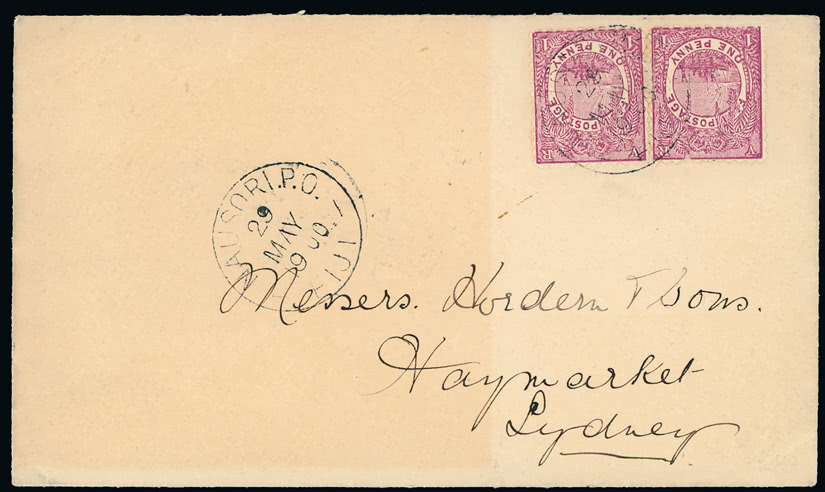 1 ONE PENNY 1
FIJI POSTAGE
V R
1 ONE PENNY 1
POSTAGE
V
NAUSORI.P.O.
29
MAY
900
FIJI
Messers. Hordern & Sons.
Haymarket
Sydney